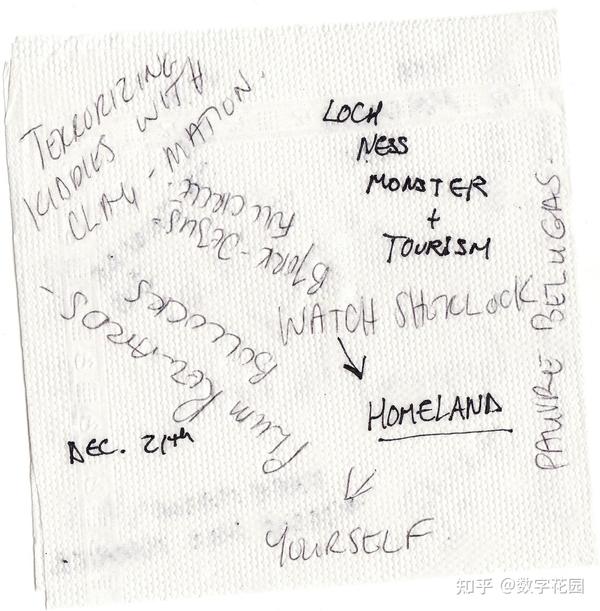 TERRORIZING
KIDDIES WITH
CLAY-MATION.
LOCH
NESS
MONSTER
+
TOURISM
BJORK-JESUS
FULL CIRCLE
PAUVRE BELUGAS.
WATCH SHERLOCK
BOLLOCKS
PLUM
HOMELAND
DEC. 21th
YOURSELF
知乎 @数字花园